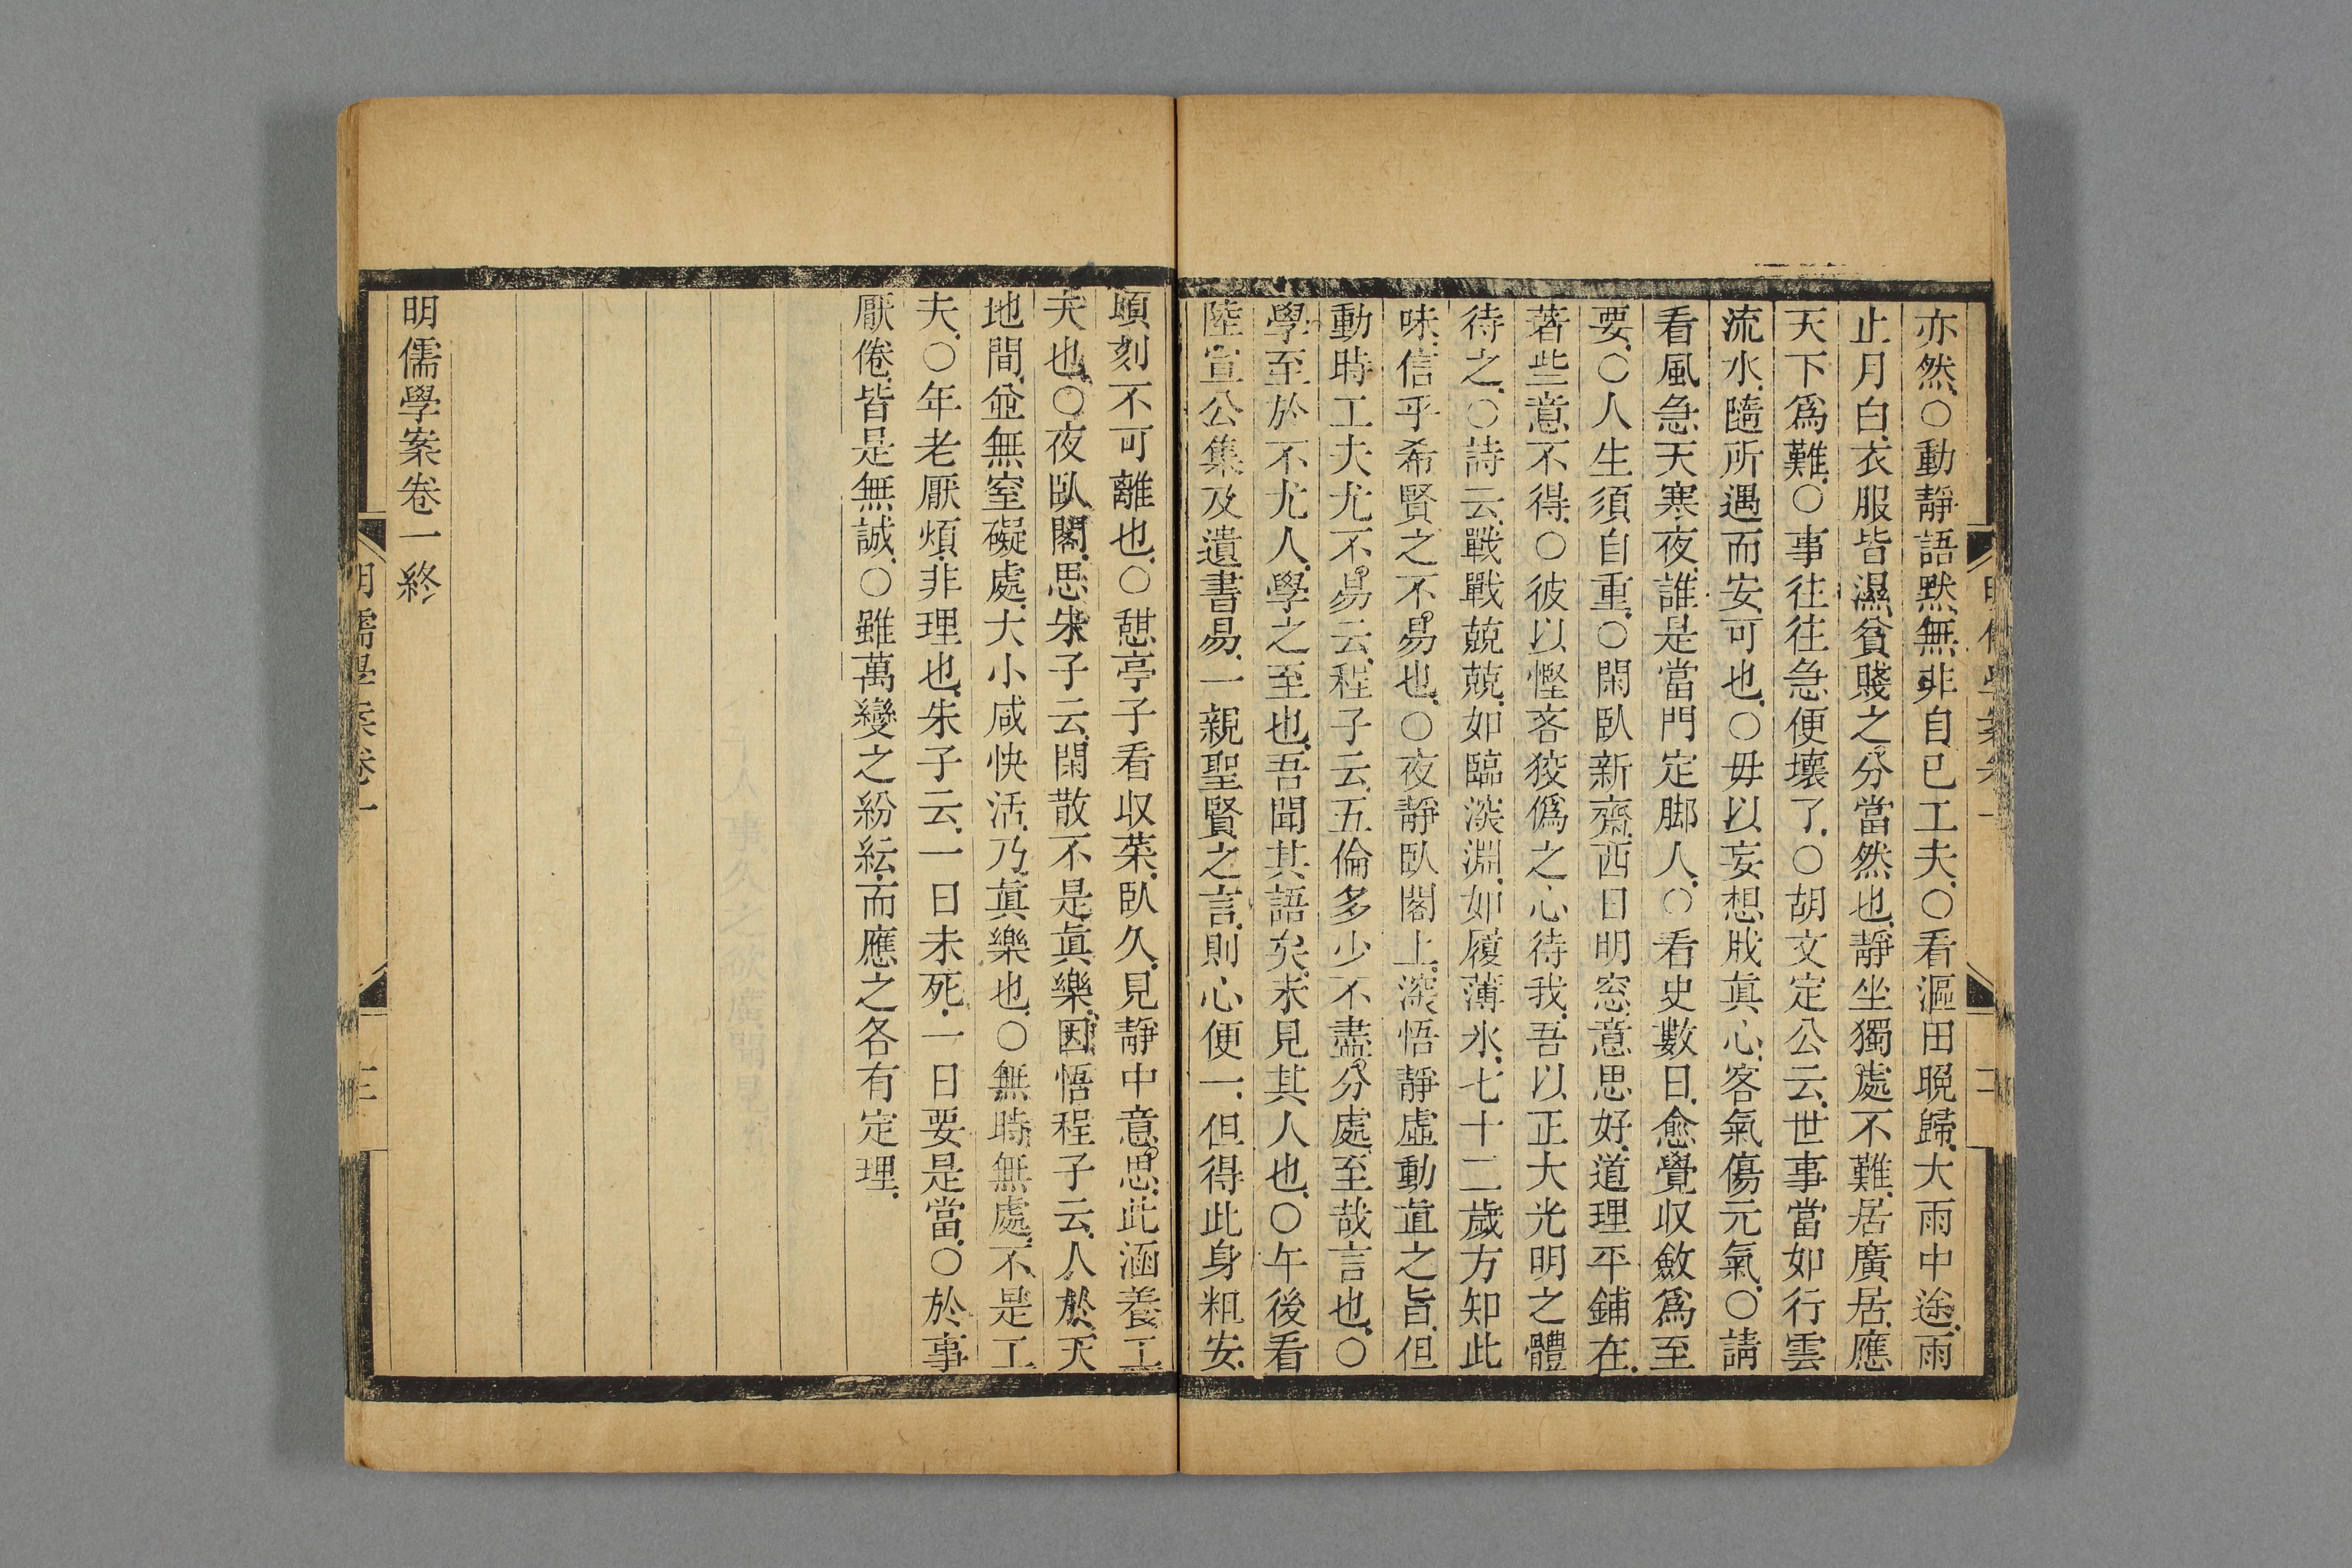 亦然、○動靜語默、無非自己工夫、○看漚田晚歸、大雨中途、雨
止月白、衣服皆濕、貧賤之分當然也、靜坐獨處不難、居廣居、應
天下爲難、○事往往急便壞了、○胡文定公云、世事當如行雲
流水、隨所遇而安、可也、○毋以妄想戕眞心、客氣傷元氣、○請
看風急天寒夜、誰是當門定脚人、○看史數日、愈覺収斂爲至
要、○人生須自重、○閑臥新齋、西日明窓、意思好、道理平鋪在、
著些意不得、○彼以慳吝狡僞之心待我、吾以正大光明之體
待之、○詩云、戰戰兢兢、如臨深淵、如履薄氷、七十二歲方知此
味、信乎希賢之不易也、○夜靜臥閣上、深悟靜虛動直之旨、但
動時工夫尤不易云、程子云、五倫多少不盡分處、至哉言也、○
學至於不尤人、學之至也、吾聞其語矣、未見其人也、○午後看
陸宣公集及遺書易、一親聖賢之言、則心便一、但得此身粗安、
頃刻不可離也、○憇亭子看収菜、臥久、見靜中意思、此涵養工
夫也、○夜臥閣、思朱子云、閑散不是眞樂、因悟程子云、人於天
地間、並無窒礙處、大小咸快活、乃眞樂也、○無時無處、不是工
夫、○年老厭煩、非理也、朱子云、一日未死、一日要是當、○於事
厭倦、皆是無誠、○雖萬變之紛紜、而應之各有定理、
明儒學案卷一終
明儒學案卷一